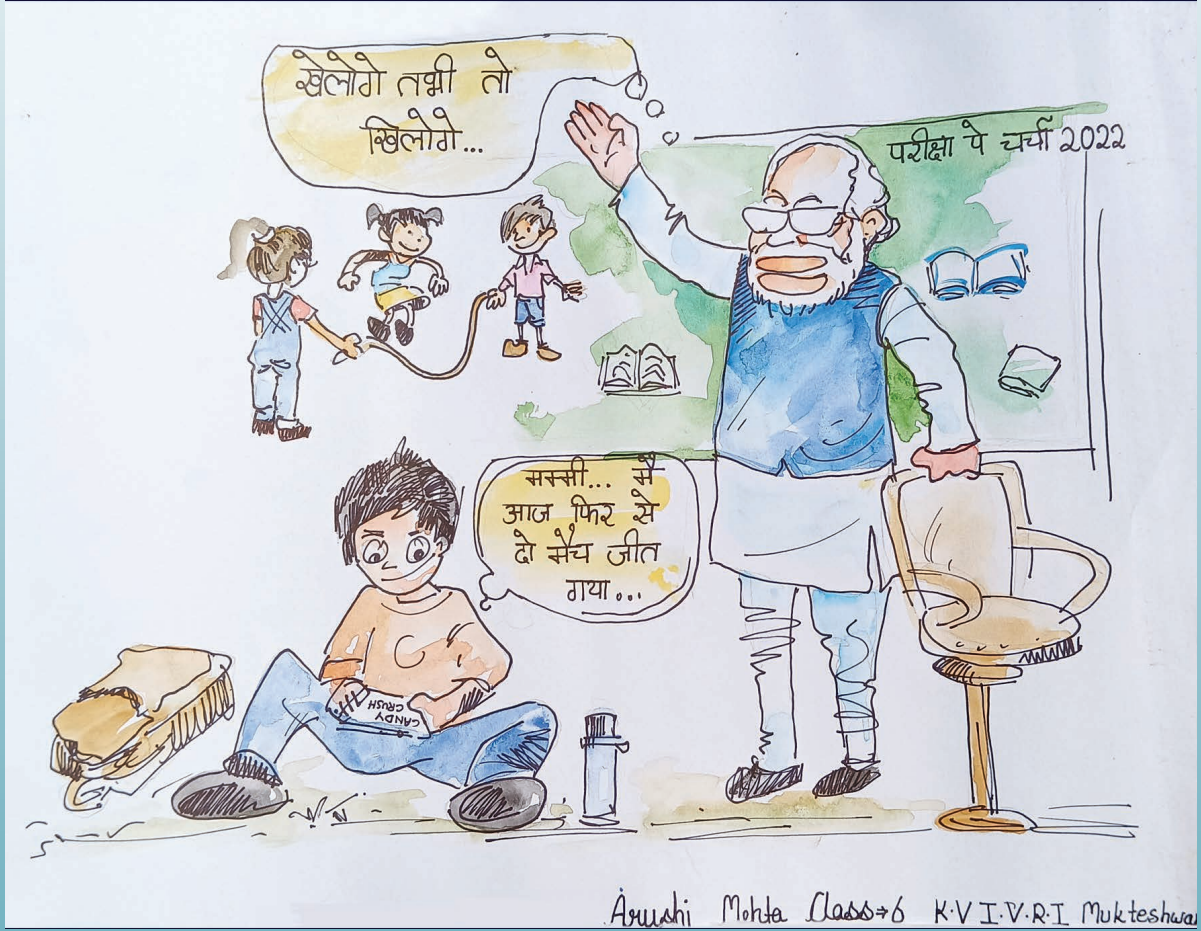 खेलोगे तभी तो
खिलोगे...
परीक्षा पे चर्चा 2022
मम्मी... मै
आज फिर से
दो मैच जीत
गया...
CANDY
CRUSH
Arushi Mohta Class→6 K.V I.V.R.I Mukteshwa